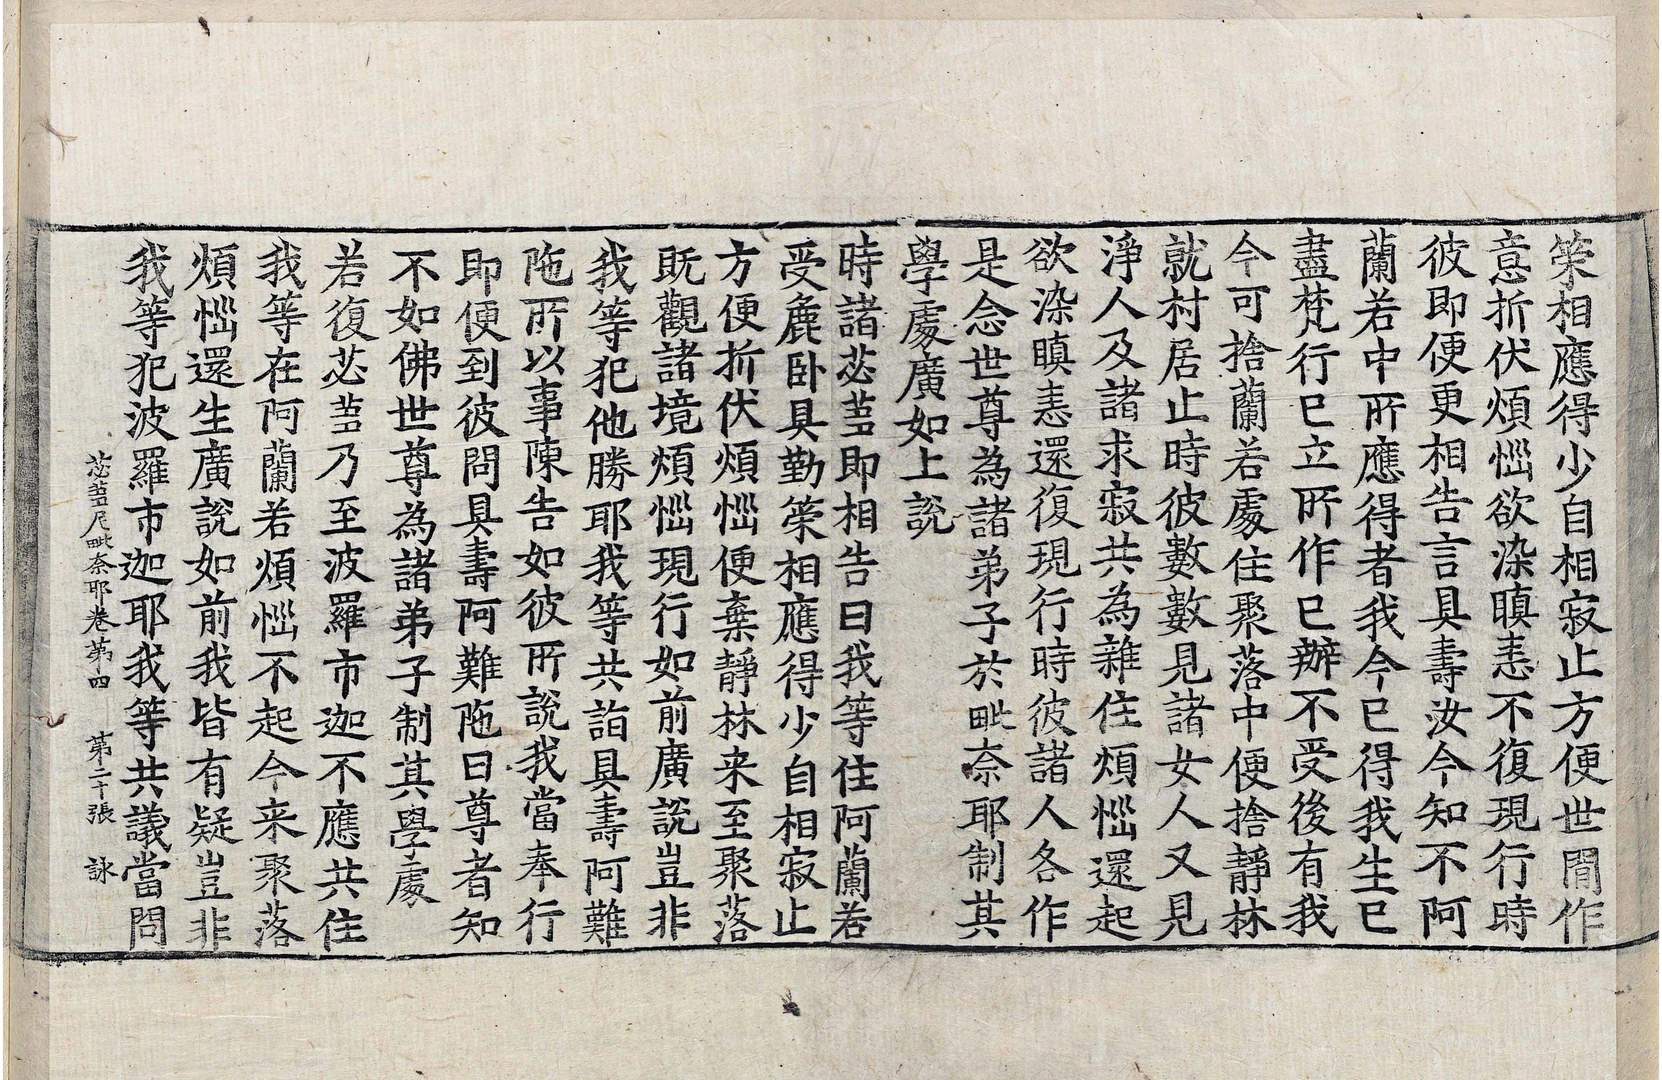 榮相應得少自相寂止方便世間作
意折伏煩惱欲染瞋恚不復現行時
彼即便更相告言具壽汝今知不阿
蘭若中所應得者我今已得我生已
盡梵行已立所作已辦不受後有我
今可捨蘭若處住聚落中便捨靜林
就村居止時彼數數見諸女人又見
淨人及諸求寂共為雜住煩惱還起
欲染瞋恚還復現行時彼諸人各作
是念世尊為諸弟子於毗奈耶制其
學處廣如上說
時諸苾芻即相告曰我等住阿蘭若
受麁卧具勤榮相應得少自相寂止
方便折伏煩惱便棄靜林来至聚落
既觀諸境煩惱現行如前廣說豈非
我等犯他勝耶我等共詣具壽阿難
陁所以事陳告如彼所說我當奉行
即便到彼問具壽阿難陁曰尊者知
不如佛世尊為諸弟子制其學處
若復苾芻乃至波羅市迦不應共住
我等在阿蘭若煩惱不起今来聚落
煩惱還生廣說如前我皆有疑豈非
我等犯波羅市迦耶我等共議當問
苾芻尼毗奈耶卷第四 第二十張 詠